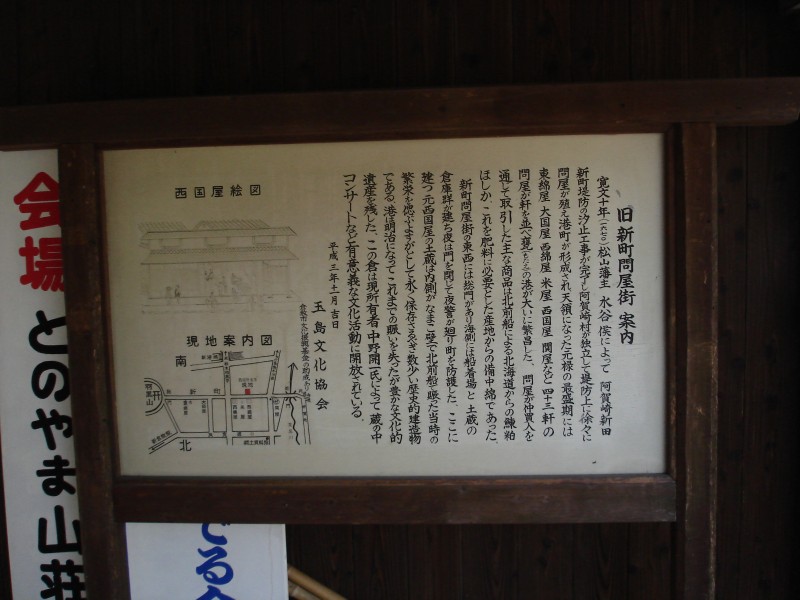 旧新町問屋街 案内
寛文十年(一六七〇)松山藩主 水谷侯によって 阿賀崎新田
新町堤防の汐止工事が完了し阿賀崎村が独立して堤防上に徐々に
問屋が殖え港町が形成され天領になった元禄の最盛期には
東綿屋、大国屋、西綿屋、米屋、西国屋、関屋など四十三軒の
問屋が軒を並べ甕の港が大いに繁昌した。問屋が仲買人を
通して取引した主な商品は北前船による北海道からの鰊粕
ほしか、これを肥料に必要とした産地からの備中綿であった。
新町問屋街の東西には総門があり海側には船着場と土蔵の
倉庫群が建ち夜は門を閉して夜警が廻り町を防護した。ここに
建つ元西国屋の土蔵は内側がなまこ壁で北前船で賑った当時の
繁栄を偲ぶよすがとして永く保存さるべき数少い歴史的建造物
である。港は明治になってこれまでの賑いを失ったが豊かな文化的
遺産を残した。この倉は現所有者 中野開一氏によって 蔵の中
コンサートなど有意義な文化活動に開放されている。
平成三年十一月吉日
玉島文化協会
西国屋絵図
現地案内図
南
北
羽黒山
新町
会場 とのやま山荘
でる